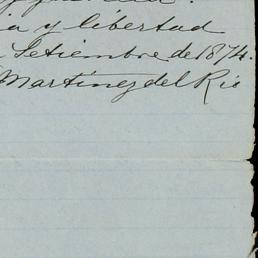 y libertad
Setiembre de 1874.
Martínez del Rio